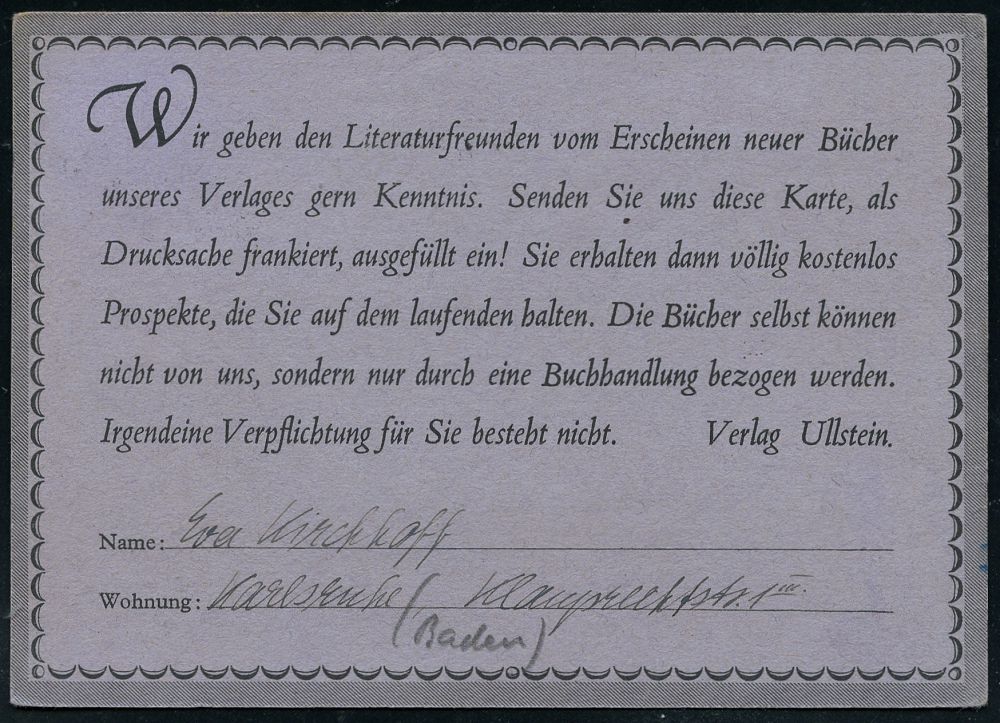 Wir geben den Literaturfreunden vom Erscheinen neuer Bücher
unseres Verlages gern Kenntnis. Senden Sie uns diese Karte, als
Drucksache frankiert, ausgefüllt ein! Sie erhalten dann völlig kostenlos
Prospekte, die Sie auf dem laufenden halten. Die Bücher selbst können
nicht von uns, sondern nur durch eine Buchhandlung bezogen werden.
Irgendeine Verpflichtung für Sie besteht nicht. Verlag Ullstein.
Name: Eva Kirchhoff
Wohnung: Karlsruhe Klauprechtstr. 1 III.
(Baden)